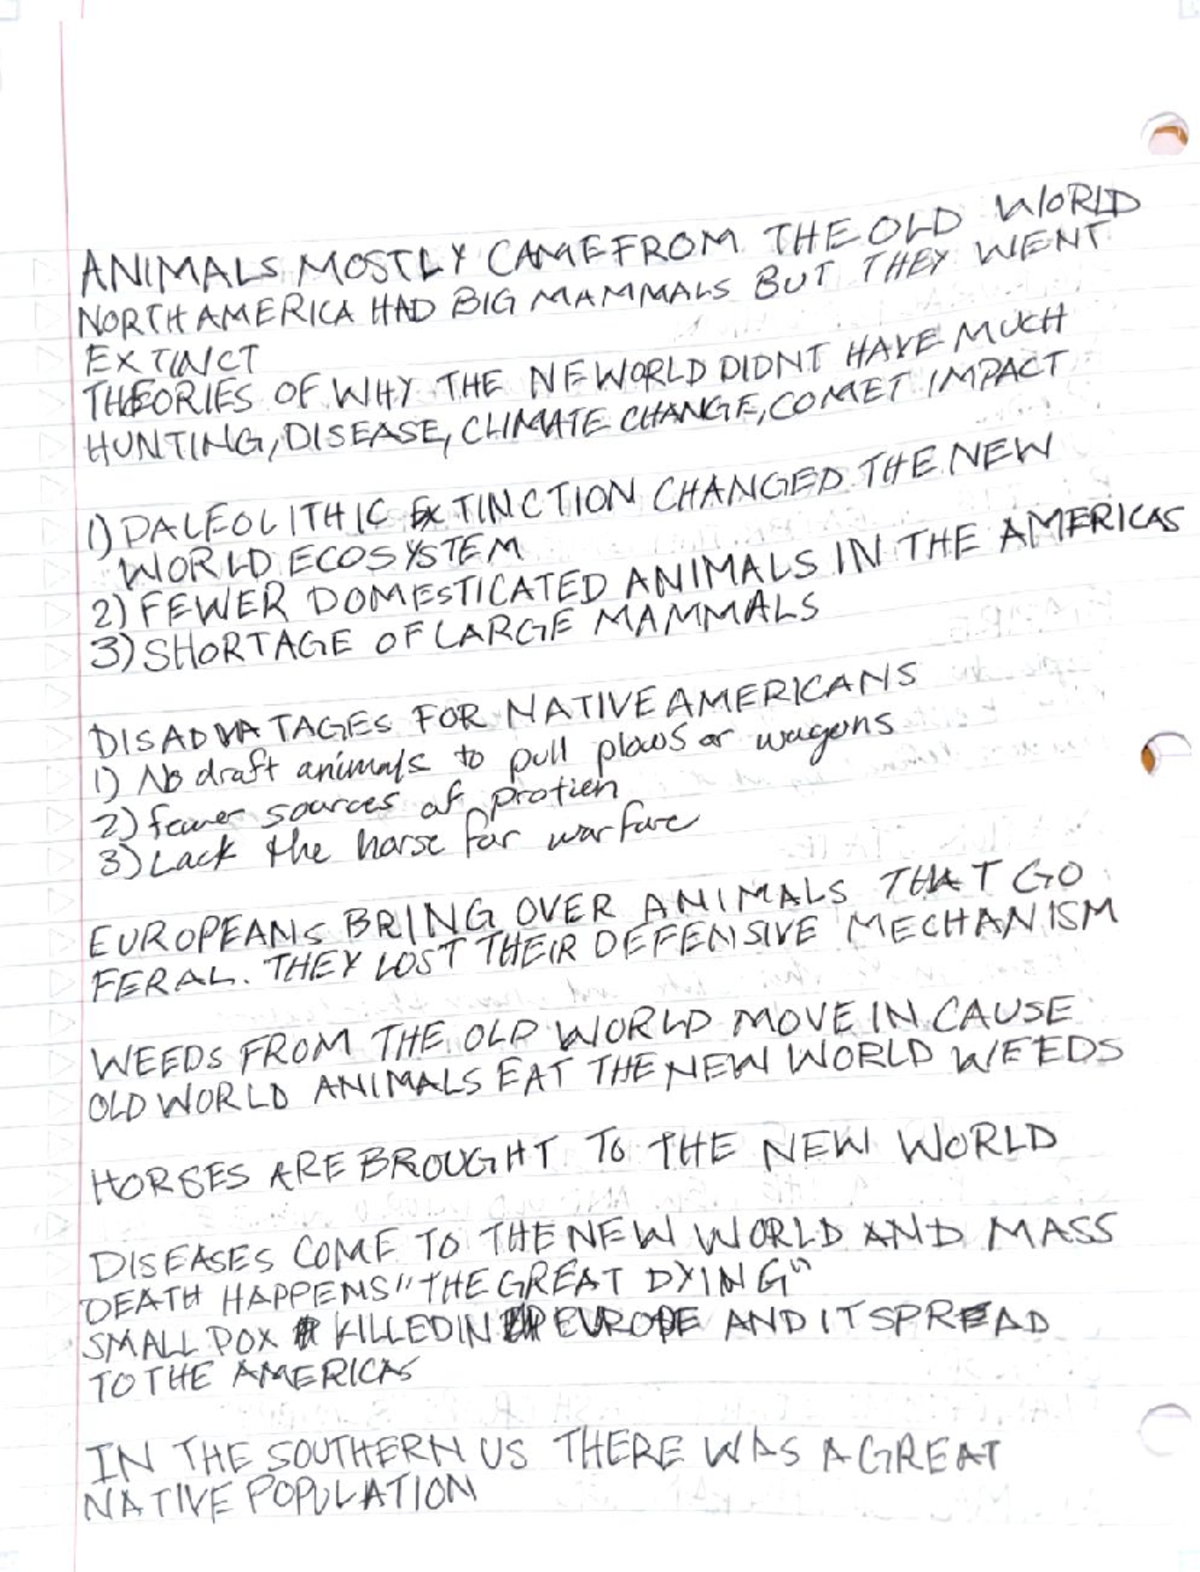 ANIMALS MOSTLY CAME FROM THE OLD WORLD
NORTH AMERICA HAD BIG MAMMALS BUT THEY WENT
EXTINCT
THEORIES OF WHY THE NEWORLD DIDNT HAVE MUCH
HUNTING, DISEASE, CLIMATE CHANGE, COMET IMPACT
1) PALEOLITHIC EXTINCTION CHANGED THE NEW
WORLD ECOSYSTEM
2) FEWER DOMESTICATED ANIMALS IN THE AMERICAS
3) SHORTAGE OF LARGE MAMMALS
DISADVATAGES FOR NATIVE AMERICANS
1) No draft animals to pull plows or wagons
2) fewer sources of protien
3) Lack the horse for warfare
EUROPEANS BRING OVER ANIMALS THAT GO
FERAL. THEY LOST THEIR DEFENSIVE MECHANISM
WEEDS FROM THE OLD WORLD MOVE IN CAUSE
OLD WORLD ANIMALS EAT THE NEW WORLD WEEDS
HORSES ARE BROUGHT TO THE NEW WORLD
DISEASES COME TO THE NEW WORLD AND MASS
DEATH HAPPENS "THE GREAT DYING"
SMALL POX KILLED IN EUROPE AND IT SPREAD
TO THE AMERICAS
IN THE SOUTHERN US THERE WAS A GREAT
NATIVE POPULATION